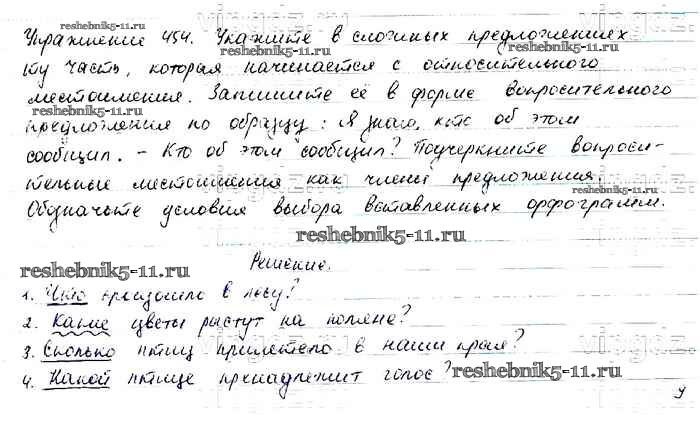 Упражнение 454. Укажите в сложных предложениях
ту часть, которая начинается с относительного
местоимения. Запишите её в форме вопросительного
предложения по образцу: Я знаю, кто об этом
сообщил. - Кто об этом сообщил? Подчеркните вопроси-
тельные местоимения как члены предложения.
Обозначьте условия выбора вставленных орфограмм.
reshebnik5-11.ru
reshebnik5-11.ru
reshebnik5-11.ru
reshebnik5-11.ru
reshebnik5-11.ru
Решение.
1. Что произошло в лесу?
2. Какие цветы растут на поляне?
3. Сколько птиц прилетело в наши края?
4. Какой птице принадлежит голос?
reshebnik5-11.ru